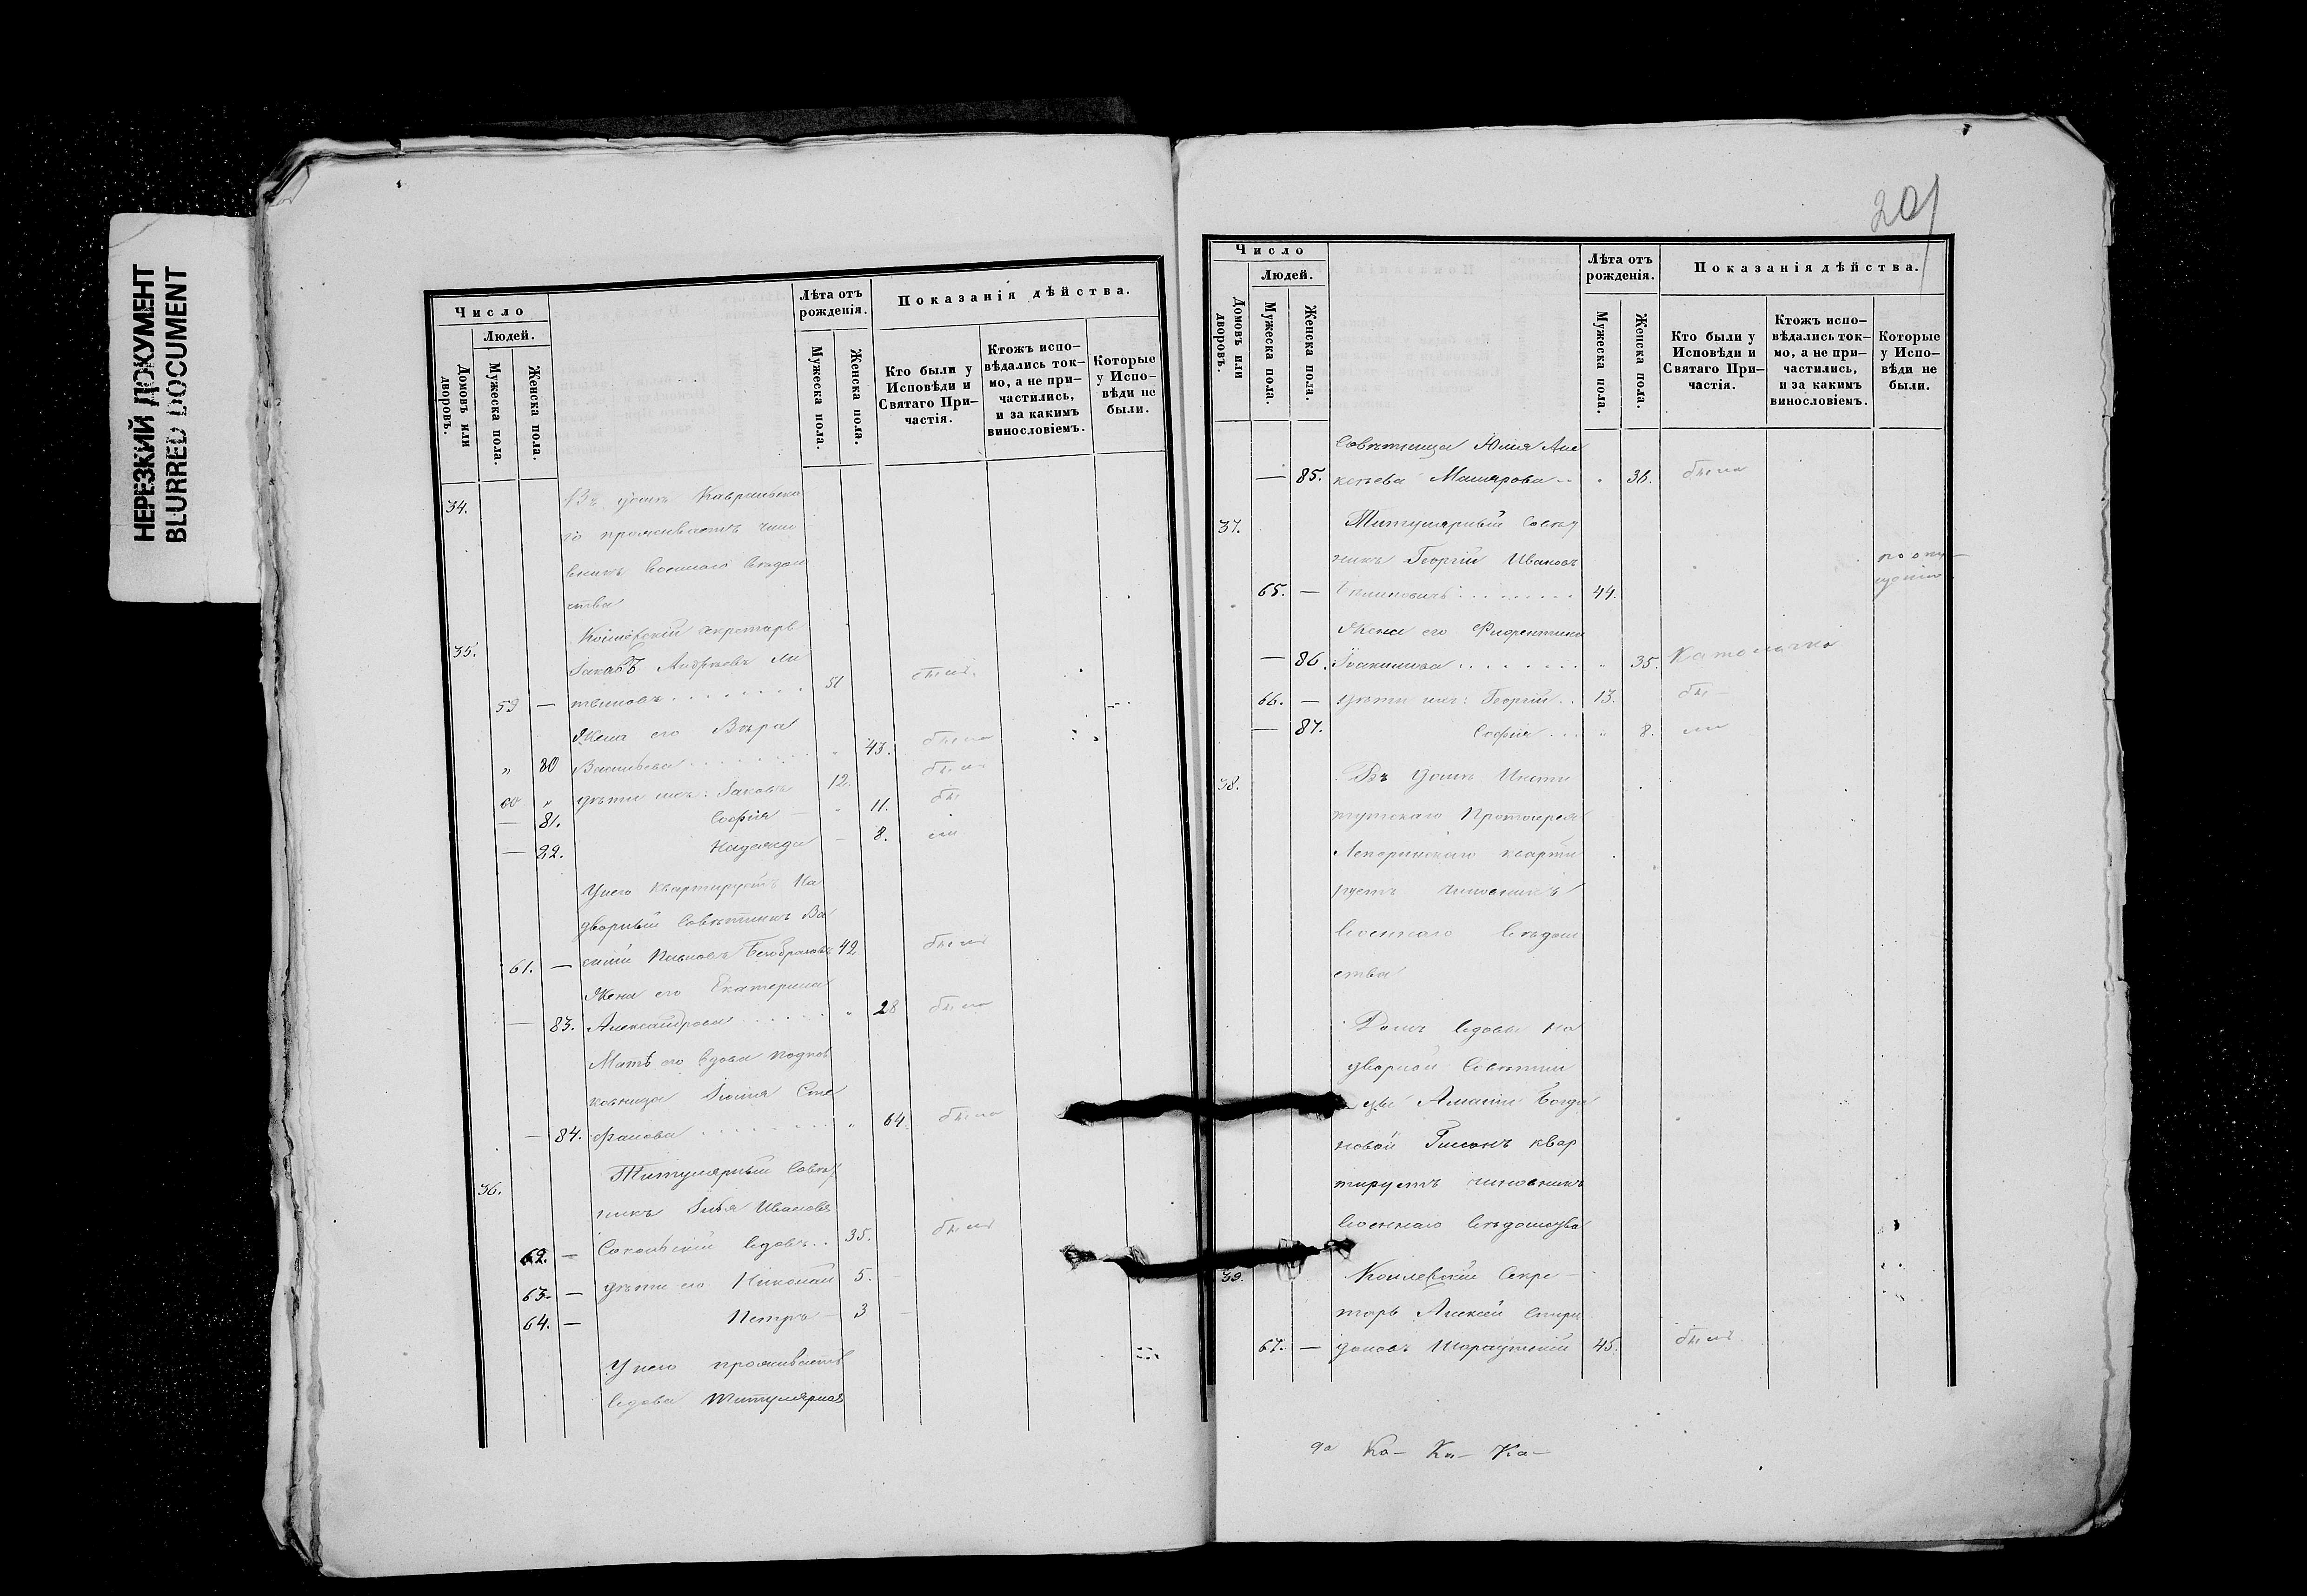 НЕРЕЗКИЙ ДОКУМЕНТ
BLURRED DOCUMENT
Число
Людей.
Домовъ или дворовъ.
Мужеска пола.
Женска пола.
Лѣта отъ рожденія.
Мужеска пола.
Женска пола.
Показанія дѣйства.
Кто были у Исповѣди и Святаго При-
частія.
Ктожъ испо-
вѣдались ток-
мо, а не при-
частились,
и за какимъ
винословіемъ.
Которые
у Испо-
вѣди не
были.
34. Въ домѣ
го проживаетъ чино
вникъ военнаго вѣдом
ства
35. Коллежскій секретарь
Іаковъ Андреевъ Ли
59 — твиновъ 51 былъ
Жена его Вѣра
" 80 Васильева " 43. была
60 " дѣти ихъ: Іаковъ 12. былъ
— 81. Софія — " 11. бы
— 22. Надежда — 8. ли
У него квартируетъ На
дворный Совѣтникъ Ва
61. — силій Павловъ Безобразовъ 42 былъ
Жена его Екатерина
— 83. Александрова " 28 была
Мать его вдова подпол
ковница Юлія Сте
— 84. фанова " 64. была
36. Титулярный Совѣт
никъ Илья Ивановъ
62. — вдовъ 35. былъ
63. — дѣти его Николай 5.
64. — Петръ — 3
У него проживаетъ
вдова Титулярная
201
Число
Людей.
Домовъ или дворовъ.
Мужеска пола.
Женска пола.
Лѣта отъ рожденія.
Мужеска пола.
Женска пола.
Показанія дѣйства.
Кто были у Исповѣди и Святаго При-
частія.
Ктожъ испо-
вѣдались ток-
мо, а не при-
частились,
и за какимъ
винословіемъ.
Которые
у Испо-
вѣди не
были.
Совѣтница Юлія Але
— 85. ксѣева " 36. была
37. Титулярный Совѣт
никъ Георгій Ивановъ по опу-
65. — 44. щенію
Жена его
— 86. Іоакимова " 35. Католичка
66. — дѣти ихъ: Георгій 13. бы-
— 87. Софія " 8. ли
38. Въ домѣ Инсти
тутскаго Протоіерея
кварти
руетъ чиновникъ
военнаго вѣдом
ства
Домъ вдовы На
дворной Совѣтни
цы Богда
новой квар
тируетъ чиновникъ
военнаго вѣдомства
39. Коллежскій Секре
тарь Алексѣй Спири
67. — доновъ 45. былъ
Ка- Ка- Ка-